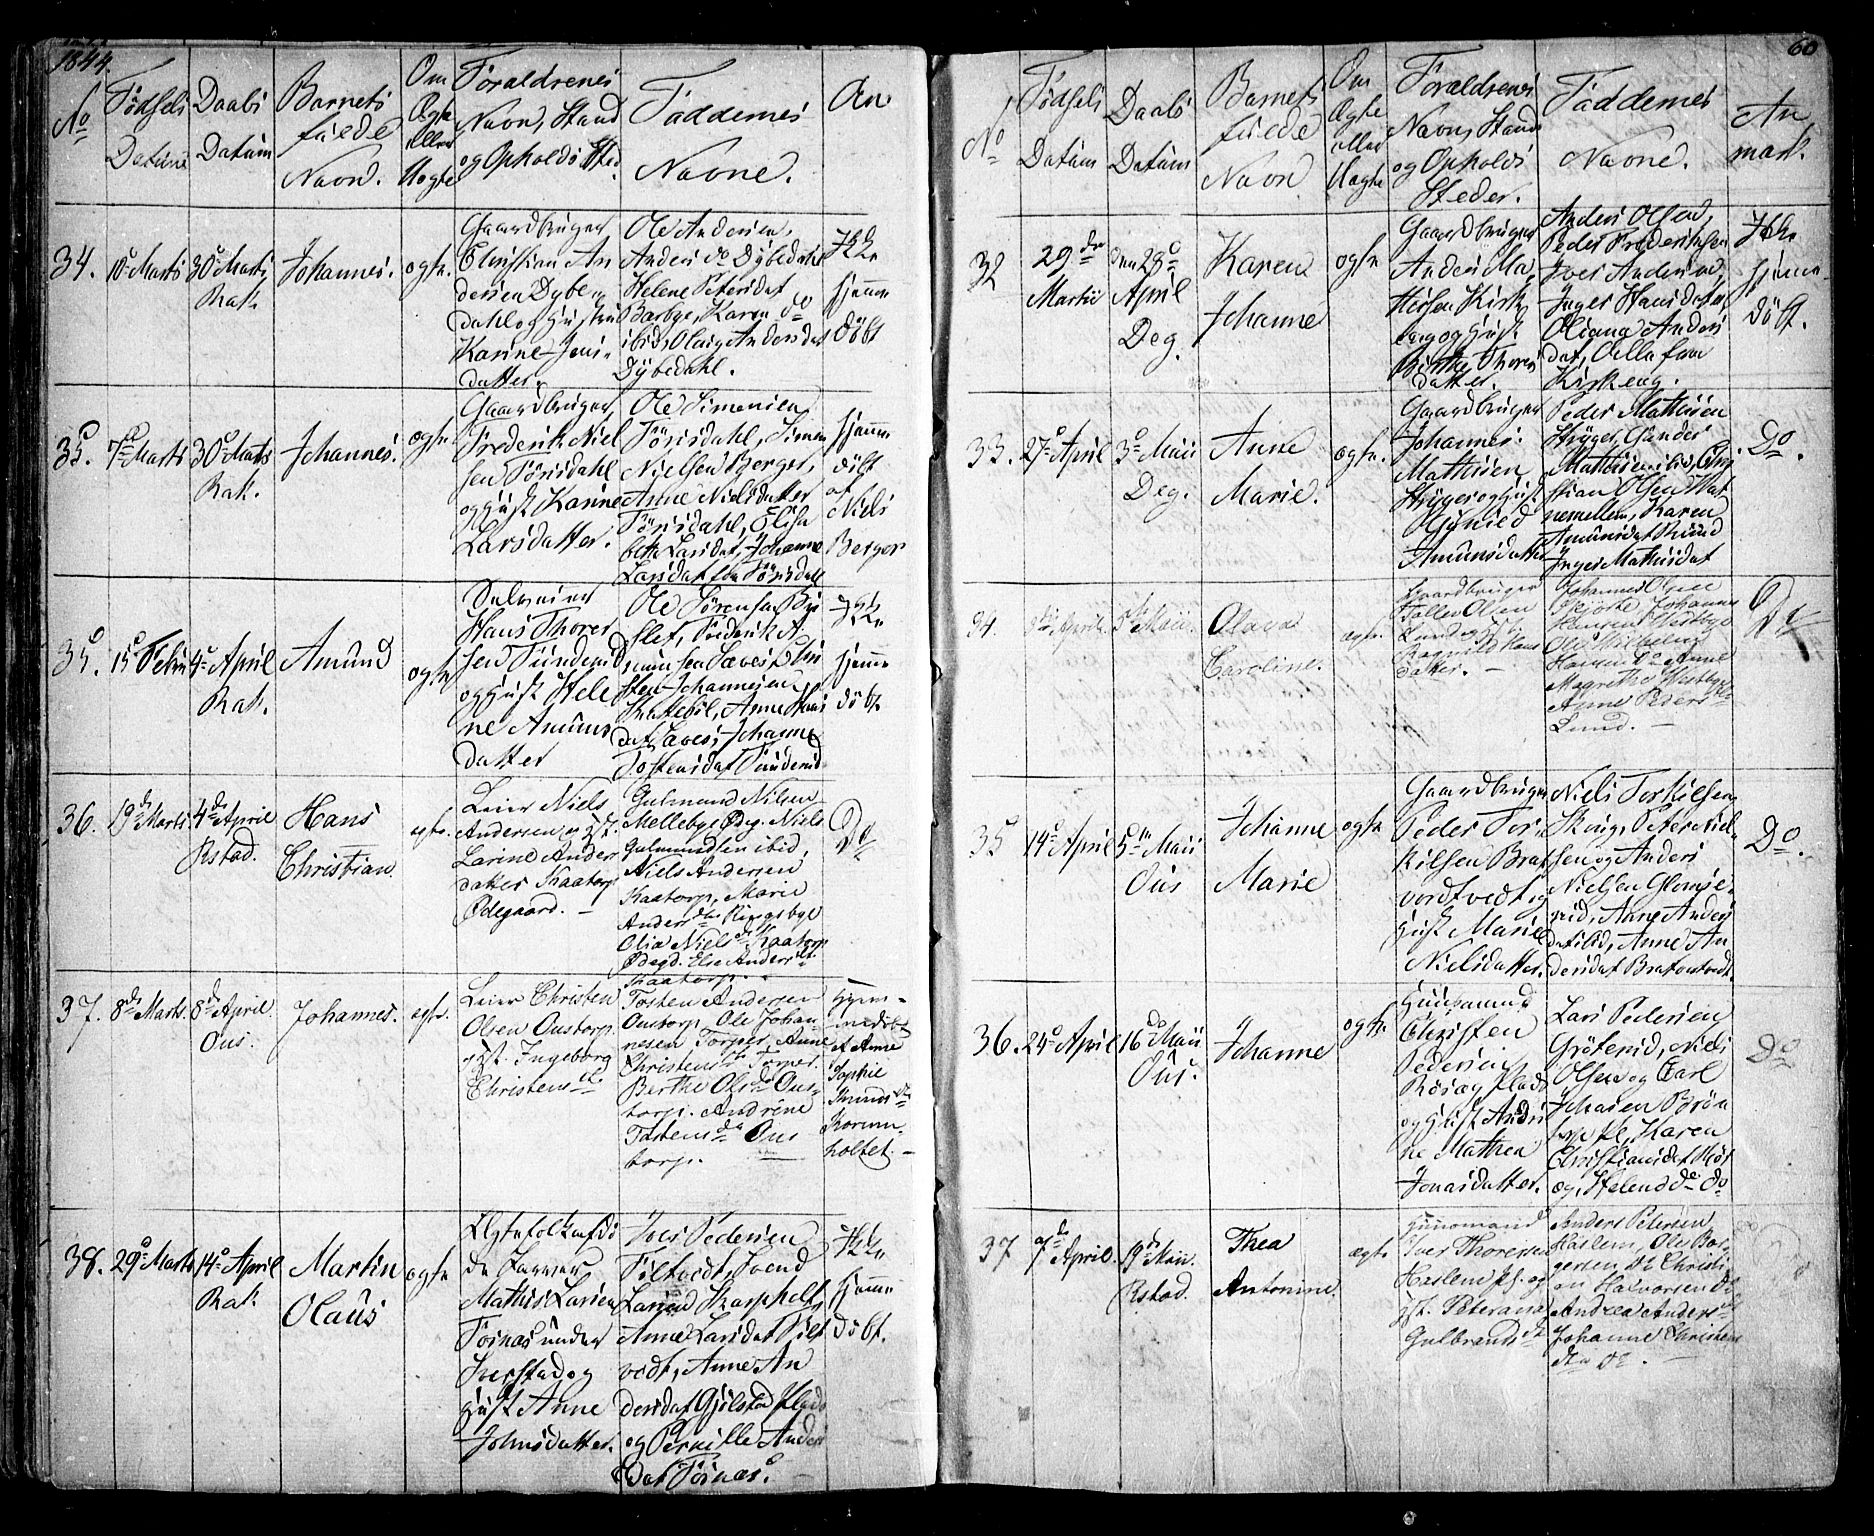 1844.
No
Födsels
Datum
Daabs
Datum
Barnets
fulde
Navn.
Om
Ægte
eller
Uægte
Foraldrenes
Navn, Stand
og Opholds Sted.
Faddernes
Navne.
An
34.
10d Marts
30d Marts
Rak.
Johannes.
ægte.
Gaardbruger
Christian An
dersen Dybe
dahl og Hustru
Karine Jens
datter.
Ole Andersen,
Anders do Dybedahl
Helene Petersdat
Barbye, Karen do
ibid, Olava Andersdat
Dybedahl.
Ikke
hjemme
döbt
35.
7d Marts
30d Marts
Rak.
Johannes.
ægte
Gaardbruger
Frederik Niel
sen Törisdahl
og Hust Karine
Larsdatter.
Ole Simensen
Törisdahl, Simen
Nielsen Berger,
Anne Nielsdatter
Törisdahl, Elisa
beth Larsdat, Johanne
Larsdat fra Törisdahl
hjemme
döbt
af
Niels
Berger
35.
15d Febr
4d April
Rak.
Amund
ægte
Hans Thorer
sen
og Hust Hele
ne Amunds
datter
Ole Sörensen
slet, Frederik A
mundsen Sæves
sten Johannesen
Krakeböl, Anne Hans
dat Sæves, Johanne
Tostensdat
Ikke
hjemme
döbt
36.
19de Marts
4de April
Rstad.
Hans
Christian
ægte.
Leier Niels
Andersen og Hst.
Larine Anders
datter Kaatorp
Ödegaard. —
Gulmund Nilsen
Melleby Ödeg. Niels
Gulmundsen ibid,
Niels Andersen
Kaatorp, Marie
Andersdtr Ringsbye
Olia Nielsdtr Kaatorp
Ödegd. Else Andersdt.
Kaatorp. —
Do
37.
8de Marts.
8de April
Ous.
Johannes.
ægte.
Leier Christen
Olsen Oustorp.
Hst. Ingeborg
Christensdtr
Tosten Andersen
Oustorp, Ole Johan-
nesen Torper, Anne
Christensdtr Torper.
Berthe Olsdtr Ous-
torp. Andrine
Tostensdtr Ous
torp.
Hjem-
medöbt
af Anne
Sophie
Knudsdtr
Korum-
holtet. —
38.
29d Marts
14d April
Rak
Martin
Olaus
ægte
Ægtefolk
Mathis Larsen
Törnæs under
Iverstad og
Hust Anne
Johnsdatter.
Iver Pedersen
Filtvedt, Svend
Larsen Karpholt,
Anne Larsdat Filt
vedt, Anne An
dersdat Gjölstad Plads
og Pernille Anders
dat Törnæs.
Ikke
hjemme
döbt.
60
No
Födsels
Datum
Daabs
Datum
Barnets
fulde
Navn
Om
Ægte
eller
Uægte
Foraldrenes
Navn, Stand
og Opholds
Steder.
Faddernes
Navne.
An
mærk.
32
29de
Martii
den 28d
April
Deg.
Karen
Johanne
ægte
Gaardbruger
Anders Ma
thisen Kirk
eng og Hust.
Birthe Thores
datter.
Anders Olsen,
Peder Frederiksen
Iver Andersen,
Inger Hansdatter
Oliana Anders
dat, alle fra
Kirkeng.
Ikke
hjemme
döbt.
33.
27d April
3d Maii
Deg.
Anne
Marie.
ægte.
Gaardbruger
Johannes
Mathisen
Stÿger og Hust
Gunild
Amundsdatter
Peder Mathisen
Stÿger, Gunder
Mathisen ibid, Chri
stian Olsen West
nemellem, Karen
Amundsdat Kund
Inger Mathisdat
Do.
34.
April.
5de Maii.
Olava
Caroline.
ægte.
Gaardbruger
Tollev Olsen
Lund og Hst.
Ragnild Hans
datter. —
Johannes Olsen
Johannes
Hansen Westbye
Ole Wilhelm
Hansen Do Anne
Magrethe Westbye
Anne Pedersdtr
Lund. —
Do
35
14d April
5te Maii
Ous
Johanne
Marie
ægte
Gaardbruger
Peder Tor
kilsen Brat
vordtvedt og
Hust Marie
Nielsdatter.
Niels Torkilsen
Skoug, Peter Niel
sen og Anders
Nielsen Glomse
rud, Anne Anders
dat ibid, Anne An
dersdat Bratvortvedt
Do.
36.
24d April
16de Maii
Ous.
Johanne
ægte
Huusmand
Christen
Pedersen
Röisæg Plads
og Hust Andri
ne Mathea
Jonasdatter.
Lars Pedersen
Gröterud, Niels
Olsen og Carl
Johansen Brön
torp pl, Karen
Christiansdat Röi
sæg, Helene do do
Do
37
7de April.
19de Maii.
Rstad.
Thea
Antonine.
ægte
Huusmand
Iver Thoresen
Haslem pl. og
Hst. Peterana
Gulbrandsdtr
Anders Petersen
Haslem, Ole Bor
gersen do Christi
an Halvorsen do
Andrea Andersdtr
Johanne Christens
dtr do. —